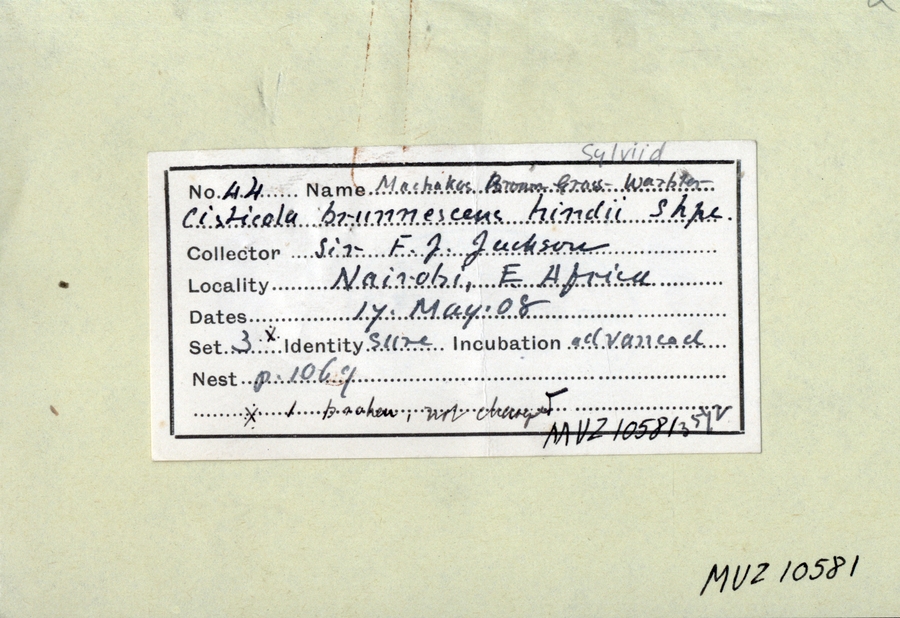 Sylviid
No. 44 Name Machakos Brown Grass-Warbler
Cisticola brunnescens hindii Shpe.
Collector Sir F. J. Jackson
Locality Nairobi, E Africa
Dates 17. May. 08
Set 3 x Identity sure Incubation advanced
Nest p. 1069
x 1 broken, not charged
MVZ 10581
MVZ 10581